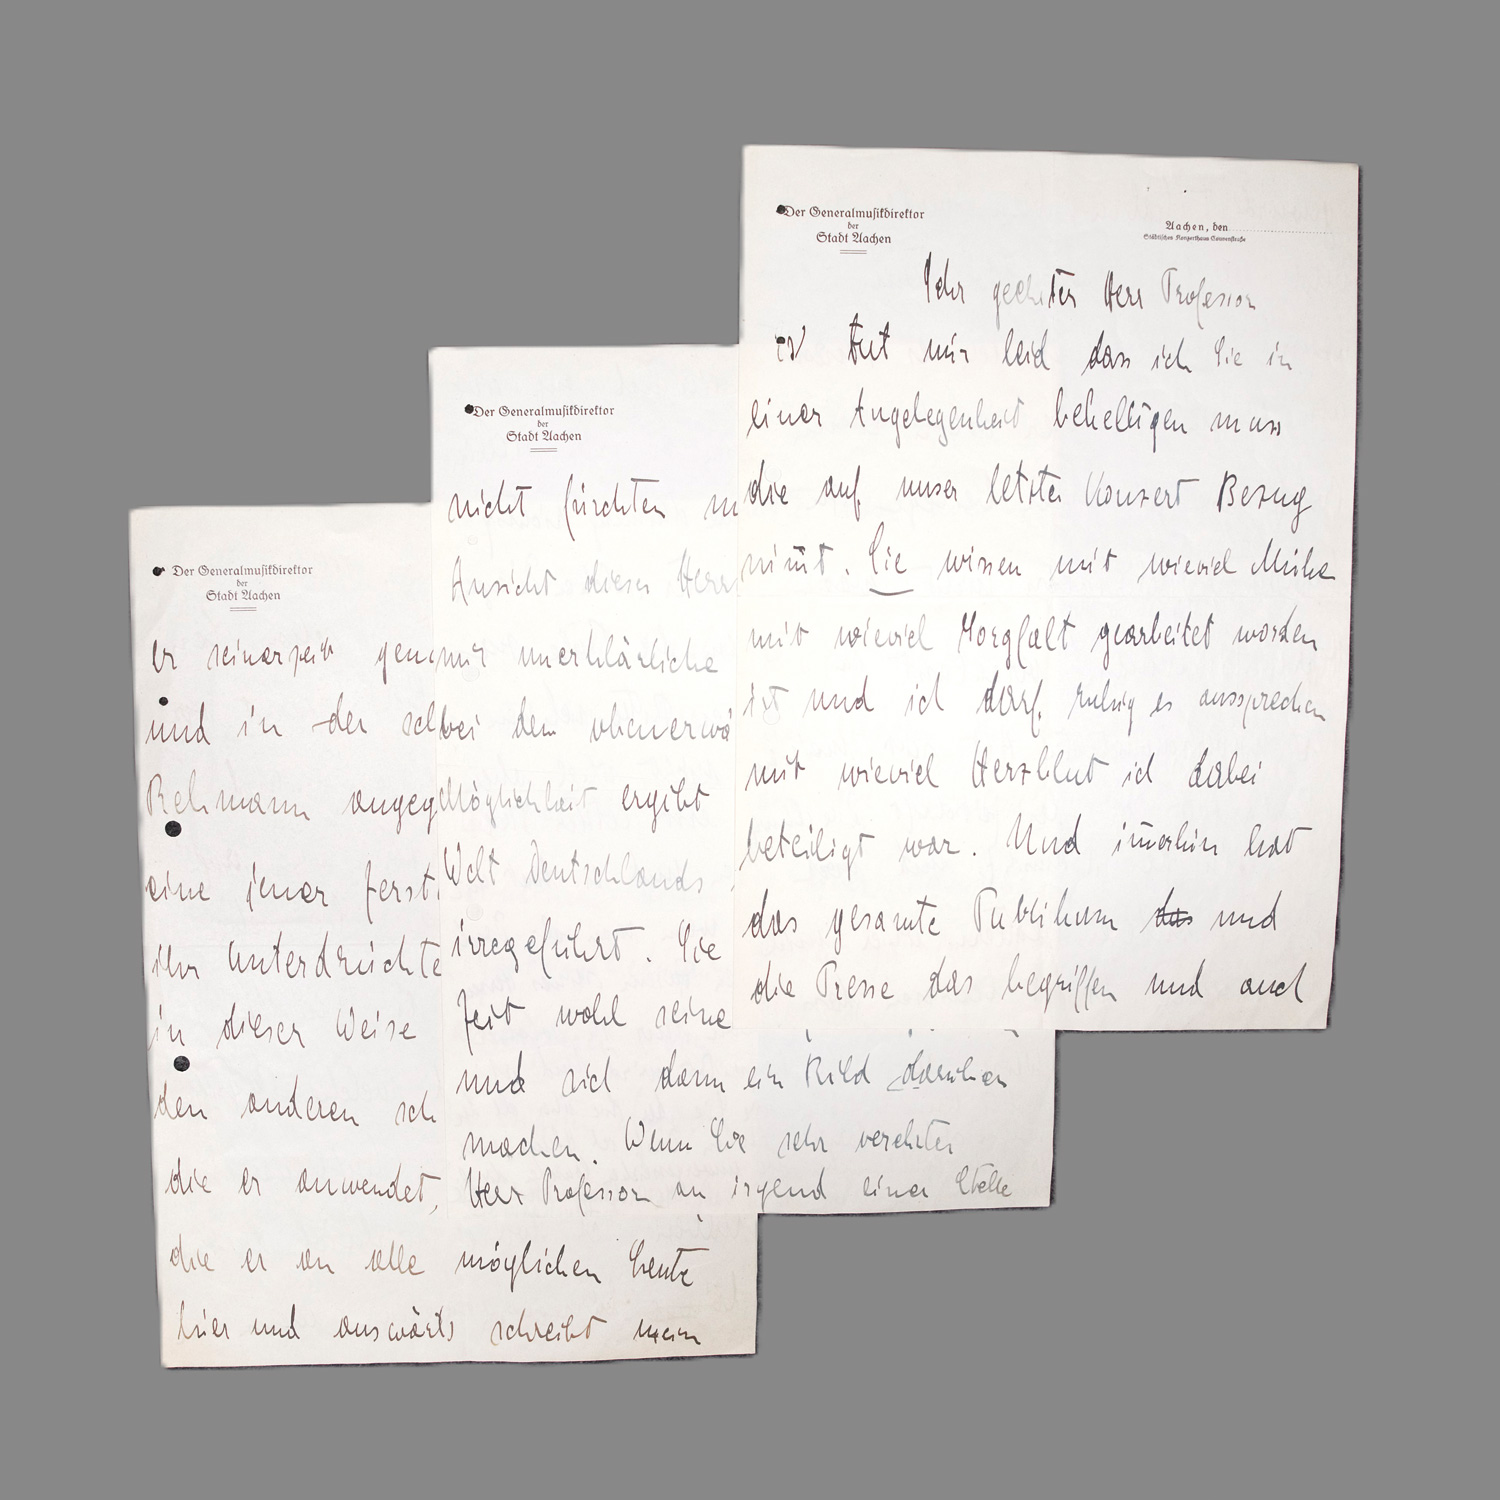 Der Generalmusikdirektor
der
Stadt Aachen
Aachen, den
Städtisches Konzerthaus Couvenstraße
Sehr geehrter Herr Professor
es tut mir leid dass ich Sie in
einer Angelegenheit behelligen muss
die auf unser letztes Konzert Bezug
nim̄t. Sie wissen mit wieviel Mühe
mit wieviel Sorgfalt gearbeitet worden
ist und ich darf ruhig es aussprechen
mit wieviel Herzblut ich dabei
beteiligt war. Und im̄erhin hat
das gesamte Publikum das und
die Presse das begriffen und auch
Der Generalmusikdirektor
der
Stadt Aachen
nicht fürchten
Ansicht dieser Herr
mir unerklärliche
bei dem obenerwä
Möglichkeit ergibt
Welt Deutschlands
irregeführt. Sie
Zeit wohl seine
und sich dann ein Bild darüber
machen. Wenn Sie sehr verehrter
Herr Professor an irgend einer Stelle
Der Generalmusikdirektor
der
Stadt Aachen
er seinerzeit
und in der
Rehmann
eine jener
ihr unterdrückte
in dieser Weise
den anderen sch
die er anwendet,
die er an alle möglichen Leute
hier und auswärts schreibt